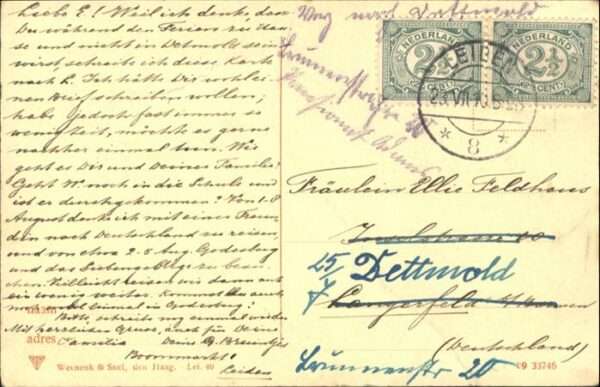 Liebe E! Weil ich denke, dass
Du während den Ferien zu Hau-
se und nicht in Detmold sein
wirst schreibe ich diese Karte
nach L. Ich hätte Dir wohl ei-
nen Brief schreiben wollen;
habe jedoch fast immer so
wenig Zeit, möchte es gerne
nachher einmal tun. Wie
geht es Dir und Deiner Familie?
Geht W. noch in die Schule und
ist er durchgekommen? Von 1-8
August denke ich mit einer Freun
din nach Deutschland zu reisen,
und von etwa 2-8 Aug. Godesberg
und das Siebengebirge zu besu-
chen. Vielleicht reisen wir dann auch
ein wenig weiter. Kommst du auch
einmal in Godesberg?
Bitte, schreib mir einmal wieder.
Mit herzlichen Gruss, auch für Deine
Familie Deine
Boommarkt
Leiden
adres
Weenenk & Snel, den Haag. Let. 40
Detmold
NEDERLAND
2½
CENT
NEDERLAND
2½
CENT
LEIDEN
8
Fräulein Ellie Feldhaus
Inselstrasse 20
25/7 Dettmold
Langerfeld b/Barmen
(Deutschland)
Brunnenstr 20
09 33746